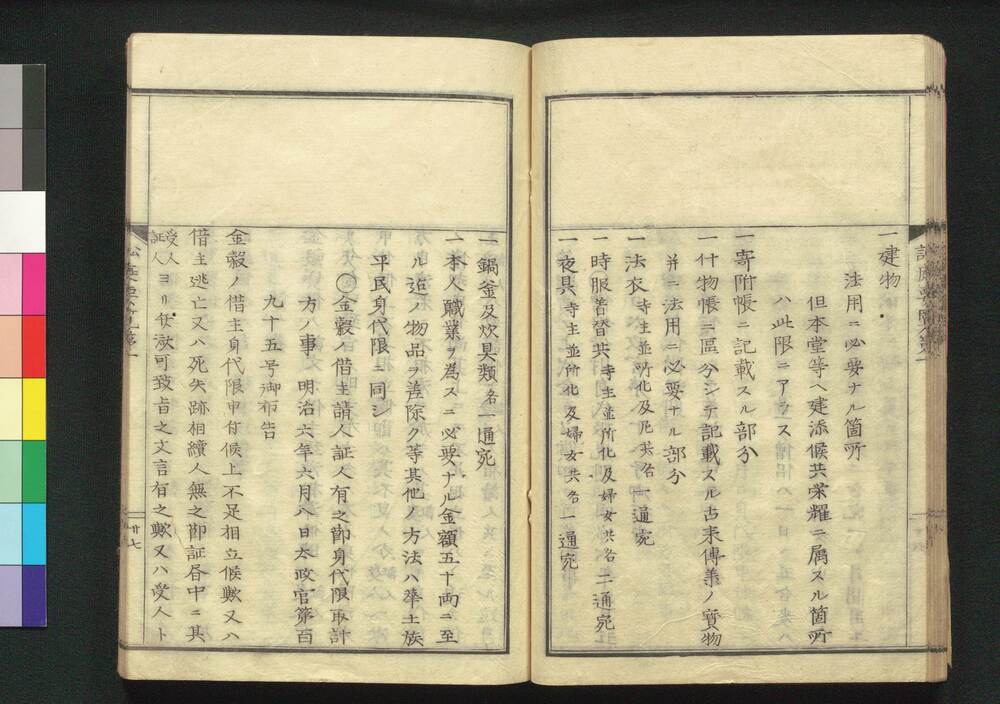 一建物
法用ニ必要ナル箇所
但本堂等ヘ建添候共栄耀ニ属スル箇所
ハ此限ニアラス
一寄附帳ニ記載スル部分
一什物帳ニ區分シテ記載スル古来傳来ノ寳物
并ニ法用ニ必要ナル部分
一法衣寺主並所化及尼共各一通宛
一時服着替共寺主並所化及婦女共各二通宛
一夜具寺主並所化及婦女共各一通宛
一鍋釜及炊具類各一通宛
一本人職業ヲ為スニ必要ナル金額五十両ニ至
ル迠ノ物品ヲ差除ク等其他ノ方法ハ華士族
平民身代限ニ同シ
〇金穀ノ借主請人証人有之節身代限取計
方ノ事 明治六年六月八日太政官第百
九十五号御布告
金穀ノ借主身代限申付候上不足相立候歟又ハ
借主逃亡又ハ死失跡相續人無之節証昏中ニ其
受人証人ヨリ弁済可致旨之文言有之歟又ハ受人ト
廿七